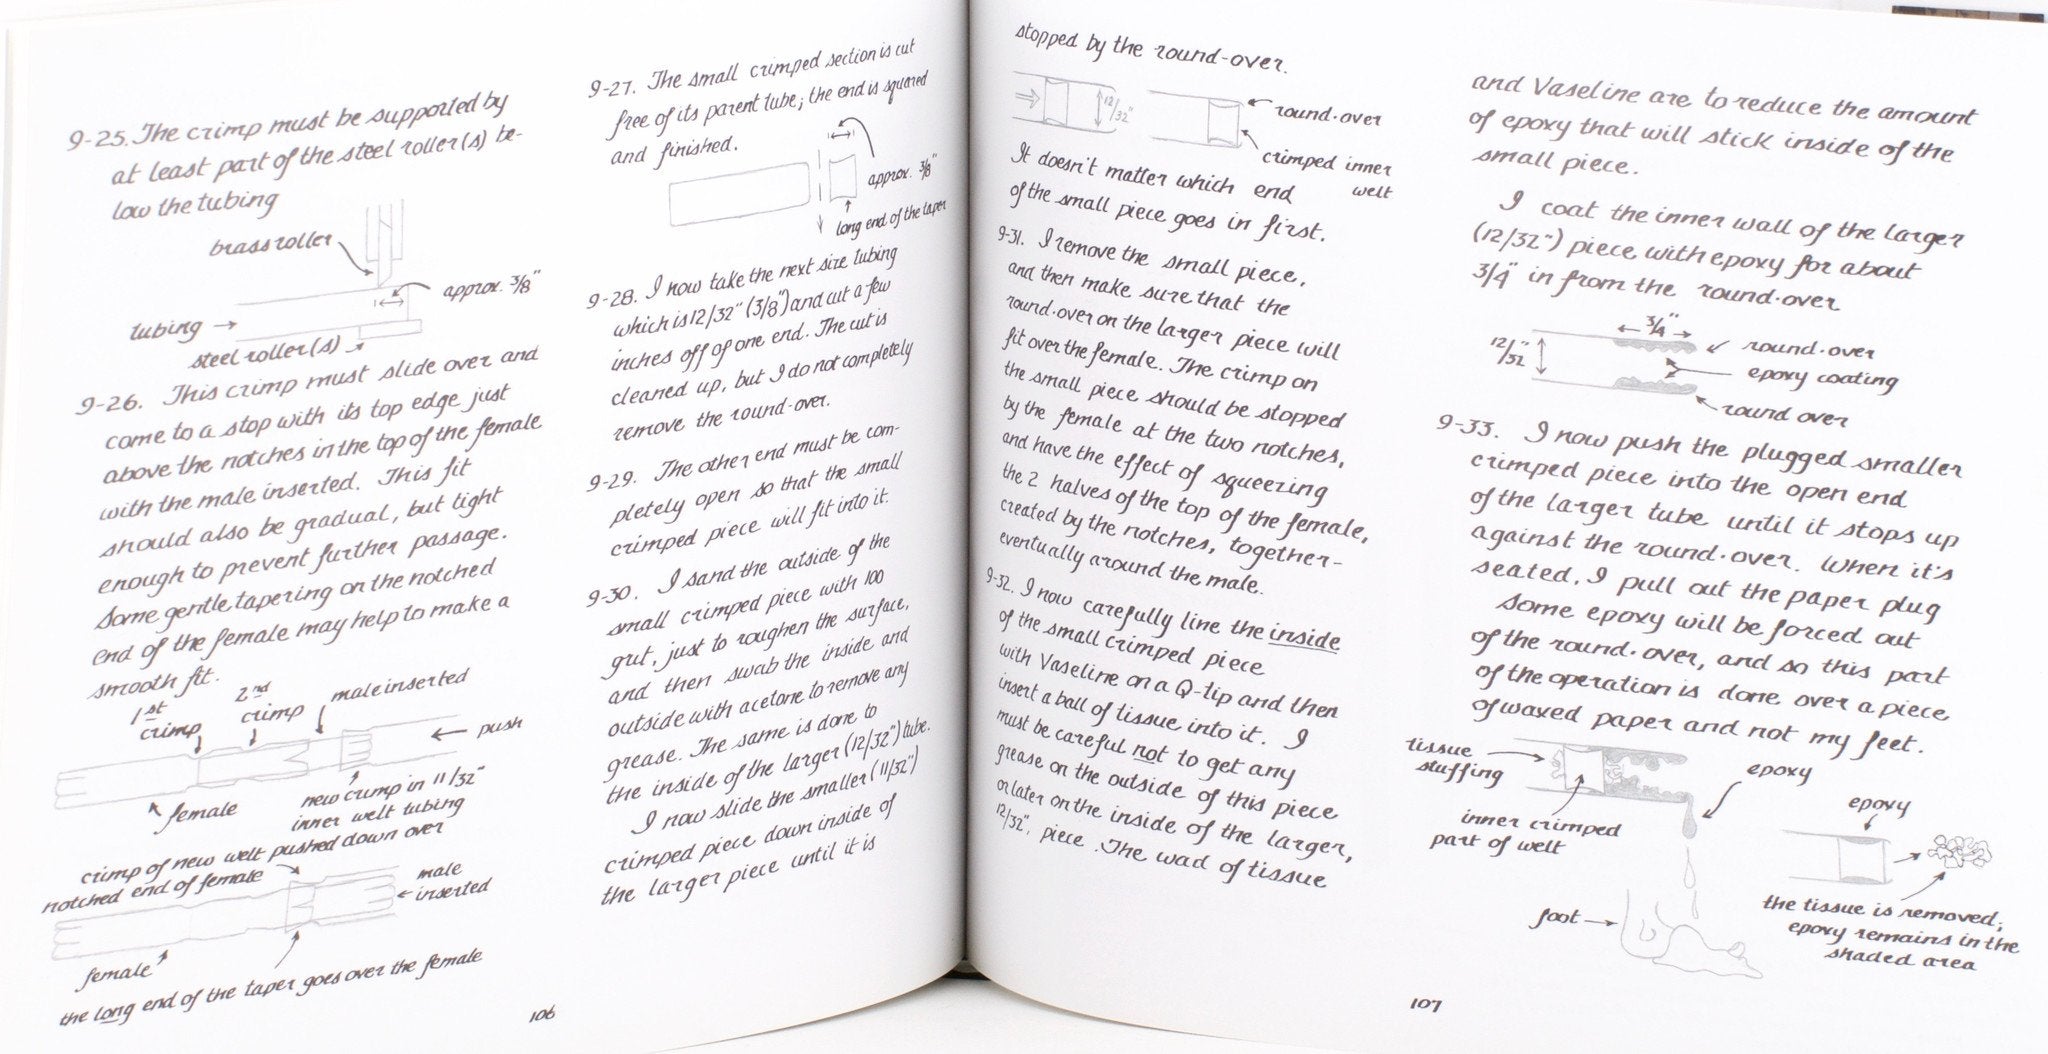 9-25. The crimp must be supported by
at least part of the steel roller(s) be-
low the tubing
brass roller
approx. 3/8"
tubing
steel roller(s)
9-26. This crimp must slide over and
come to a stop with its top edge just
above the notches in the top of the female
with the male inserted. This fit
should also be gradual, but tight
enough to prevent further passage.
Some gentle tapering on the notched
end of the female may help to make a
smooth fit.
1st
crimp
2nd
crimp
male inserted
push
female
new crimp in 11/32"
inner welt tubing
crimp of new welt pushed down over
notched end of female
male
inserted
female
the long end of the taper goes over the female
106
9-27. The small crimped section is cut
free of its parent tube; the end is squared
and finished.
approx. 3/8"
long end of the taper
9-28. I now take the next size tubing
which is 12/32" (3/8") and cut a few
inches off of one end. The cut is
cleaned up, but I do not completely
remove the round-over.
9-29. The other end must be com-
pletely open so that the small
crimped piece will fit into it.
9-30. I sand the outside of the
small crimped piece with 100
grit, just to roughen the surface,
and then swab the inside and
outside with acetone to remove any
grease. The same is done to
the inside of the larger (12/32") tube.
I now slide the smaller (11/32")
crimped piece down inside of
the larger piece until it is
stopped by the round-over.
12/32"
round-over
crimped inner
welt
It doesn't matter which end
of the small piece goes in first.
9-31. I remove the small piece,
and then make sure that the
round-over on the larger piece will
fit over the female. The crimp on
the small piece should be stopped
by the female at the two notches,
and have the effect of squeezing
the 2 halves of the top of the female,
created by the notches, together-
eventually around the male.
9-32. I now carefully line the inside
of the small crimped piece
with Vaseline on a Q-tip and then
insert a ball of tissue into it. I
must be careful not to get any
grease on the outside of this piece
or later on the inside of the larger,
12/32", piece. The wad of tissue
and Vaseline are to reduce the amount
of epoxy that will stick inside of the
small piece.
I coat the inner wall of the larger
(12/32") piece with epoxy for about
3/4" in from the round-over
3/4"
12/32"
round-over
epoxy coating
round over
9-33. I now push the plugged smaller
crimped piece into the open end
of the larger tube until it stops up
against the round-over. When it's
seated, I pull out the paper plug
Some epoxy will be forced out
of the round-over, and so this part
of the operation is done over a piece
of waxed paper and not my feet.
tissue
stuffing
epoxy
inner crimped
part of welt
epoxy
foot
the tissue is removed;
epoxy remains in the
shaded area
107